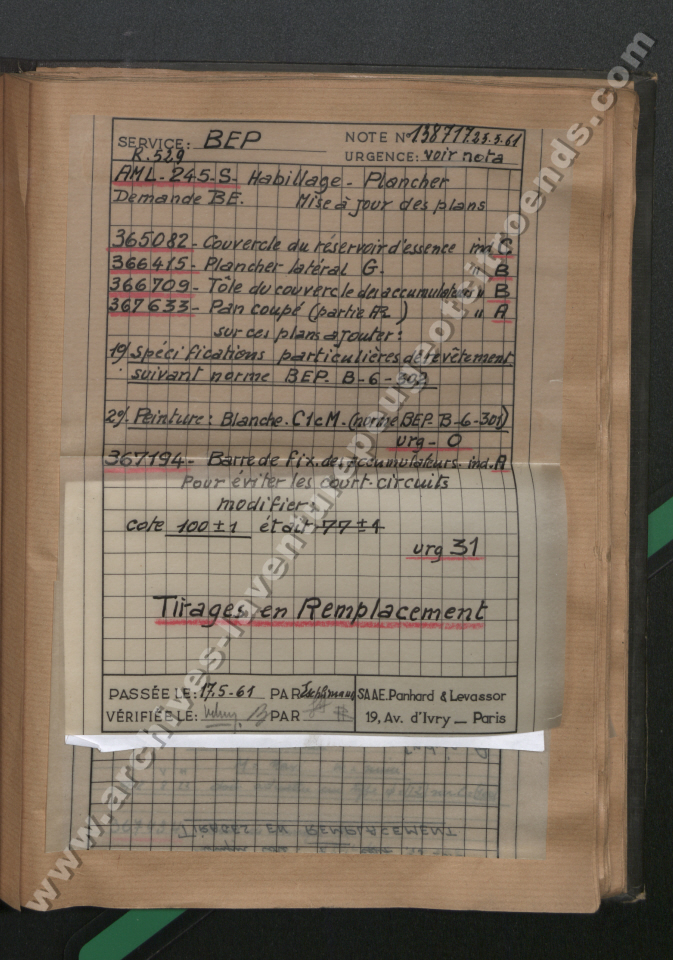 SERVICE: BEP
NOTE N° 138717 25.5.61
K.529
URGENCE: voir nota
AML-245-S- Habillage - Plancher
Demande BE. Mise à jour des plans
365082 - Couvercle du réservoir d'essence ind C
366415 - Plancher latéral G. " B
366709 - Tôle du couvercle des accumulateurs " B
367633 - Pan coupé (partie AR) " A
sur ces plans ajouter:
1°/ Spécifications particulières de revêtement
suivant norme BEP. B-6-302
2°/ Peinture: Blanche. C1cM. (norme BEP. B-6-301)
urg - O
367194 - Barre de fix. des accumulateurs. ind. A
Pour éviter les court-circuits
modifier:
cote 100 ± 1 était 77 ± 1
urg 31
Tirages en Remplacement
PASSÉE LE: 17.5-61 PAR
VÉRIFIÉE LE: PAR
SAAE. Panhard & Levassor
19, Av. d'Ivry — Paris
TIRAGES EN REMPLACEMENT
www.archives-laventurepeugeotcitroends.com